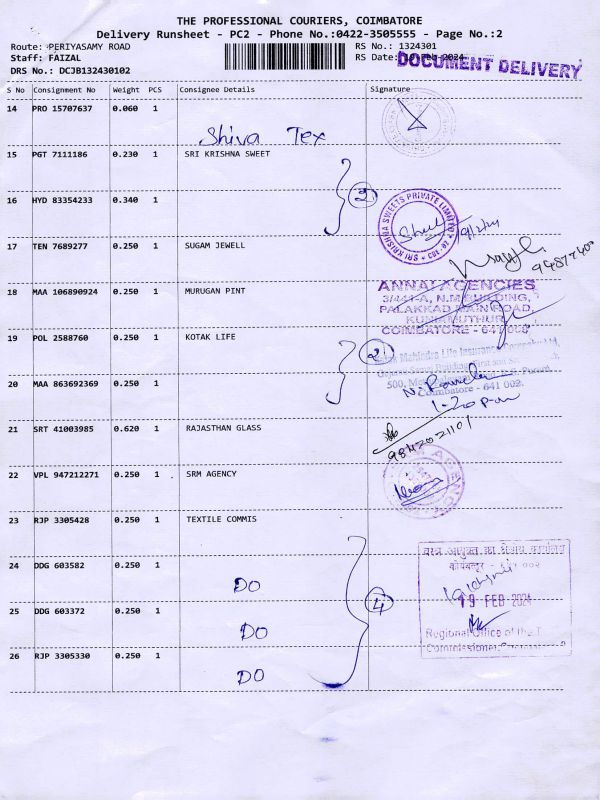 THE PROFESSIONAL COURIERS, COIMBATORE
Delivery Runsheet - PC2 - Phone No.:0422-3505555 - Page No.:2
Route: PERIYASAMY ROAD RS No.: 1324301
Staff: FAIZAL RS Date: Feb-2024 DOCUMENT DELIVERY
DRS No.: DCJB132430102
S No Consignment No Weight PCS Consignee Details Signature
14 PRO 15707637 0.060 1 Shiva Tex
15 PGT 7111186 0.230 1 SRI KRISHNA SWEET
16 HYD 83354233 0.340 1 2
SRI KRISHNA SWEETS PRIVATE LIMITED
17 TEN 7689277 0.250 1 SUGAM JEWELL
18 MAA 106890924 0.250 1 MURUGAN PINT
ANNAI AGENCIES
3/444-A, N.M BUILDING,
PALAKKAD MAIN ROAD,
KUNIAMUTHUR,
COIMBATORE - 641 008
19 POL 2588760 0.250 1 KOTAK LIFE 2
Mahindra Life Insurance
20 MAA 863692369 0.250 1
Coimbatore - 641 002.
1-20 pm
21 SRT 41003985 0.620 1 RAJASTHAN GLASS
9842021101
22 VPL 947212271 0.250 1 SRM AGENCY
23 RJP 3305428 0.250 1 TEXTILE COMMIS
वस्त्र आयुक्त का क्षेत्रीय कार्यालय
24 DDG 603582 0.250 1 DO
25 DDG 603372 0.250 1 DO 4
19 FEB 2024
Regional Office of the
26 RJP 3305330 0.250 1 DO